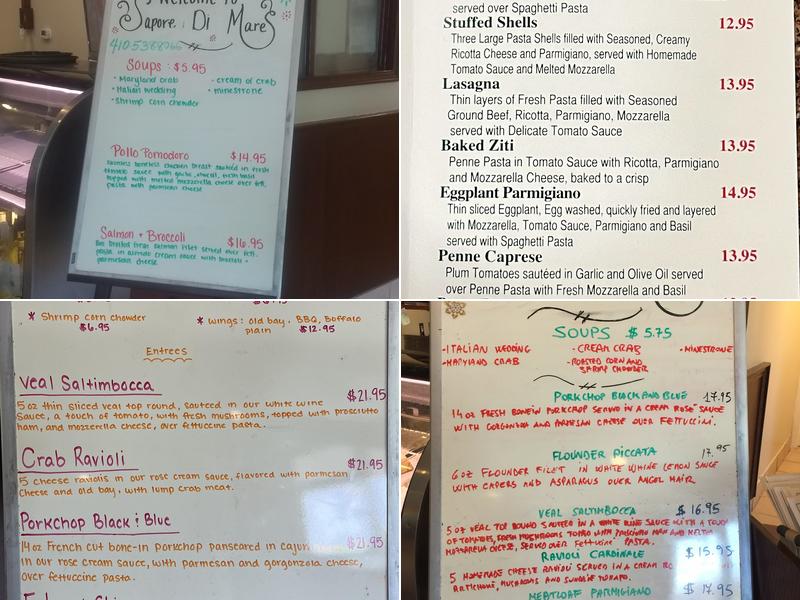 Welcome To
Sapore Di Mare
4105388066
Soups: $5.95
• Maryland crab
• cream of crab
• Italian wedding
• minestrone
• shrimp corn chowder
Pollo Pomodoro $14.95
boneless chicken breast sauteed in fresh
tomato sauce with garlic, fresh basil
topped with melted mozzarella cheese over fett.
pasta with parmesan cheese
Salmon + Broccoli $16.95
broiled fresh salmon filet served over fett.
pasta in cream sauce with broccoli +
parmesan cheese
served over Spaghetti Pasta
Stuffed Shells 12.95
Three Large Pasta Shells filled with Seasoned, Creamy
Ricotta Cheese and Parmigiano, served with Homemade
Tomato Sauce and Melted Mozzarella
Lasagna 13.95
Thin layers of Fresh Pasta filled with Seasoned
Ground Beef, Ricotta, Parmigiano, Mozzarella
served with Delicate Tomato Sauce
Baked Ziti 13.95
Penne Pasta in Tomato Sauce with Ricotta, Parmigiano
and Mozzarella Cheese, baked to a crisp
Eggplant Parmigiano 14.95
Thin sliced Eggplant, Egg washed, quickly fried and layered
with Mozzarella, Tomato Sauce, Parmigiano and Basil
served with Spaghetti Pasta
Penne Caprese 13.95
Plum Tomatoes sautéed in Garlic and Olive Oil served
over Penne Pasta with Fresh Mozzarella and Basil
* Shrimp corn chowder
$6.95
* wings: old bay, BBQ, Buffalo
plain $12.95
Entrees
Veal Saltimbocca $21.95
5 oz thin sliced veal top round, sauteed in our white wine
sauce, a touch of tomato, with fresh mushrooms, topped with prosciutto
ham, and mozzerella cheese, over fettuccine pasta.
Crab Ravioli $21.95
5 cheese raviolis in our rose cream sauce, flavored with parmesan
cheese and old bay, with lump crab meat.
Porkchop Black & Blue $21.95
14oz French cut bone-in porkchop panseared in cajun
in our rose cream sauce, with parmesan and gorgonzola cheese,
over fettuccine pasta.
SOUPS $5.75
- ITALIAN WEDDING
- CREAM CRAB
- MINESTRONE
- MARYLAND CRAB
- ROASTED CORN AND
SHRIMP CHOWDER
PORKCHOP BLACK AND BLUE 17.95
14 OZ FRESH BONEIN PORKCHOP SERVED IN A CREAM ROSE' SAUCE
WITH GORGONZOLA AND PARMESAN CHEESE OVER FETTUCCINI.
FLOUNDER PICCATA 17.95
6 OZ FLOUNDER FILET IN WHITE WHINE LEMON SAUCE
WITH CAPERS AND ASPARAGUS OVER ANGEL HAIR
VEAL SALTIMBOCCA $16.95
5 OZ VEAL TOP ROUND SAUTEED IN A WHITE WINE SAUCE WITH A TOUCH
OF TOMATOES, FRESH MUSHROOMS TOPPED WITH PROSCIUTTO HAM AND
MOZZARELLA CHEESE, SERVED OVER FETTUCCINE PASTA.
RAVIOLI CARDINALE $15.95
5 HOMEMADE CHEESE RAVIOLI SERVED IN A CREAM
ARTICHOKE, MUSHROOMS AND SUNDRIE TOMATO.
MEATLOAF PARMIGIANO $17.95